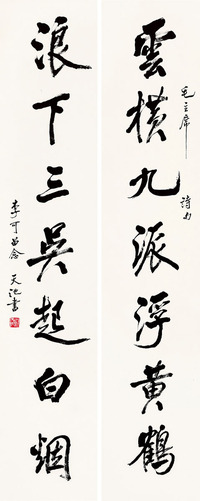 雲橫九派浮黃鶴
毛主席詩句
浪下三吳起白煙
李可留念
天池書